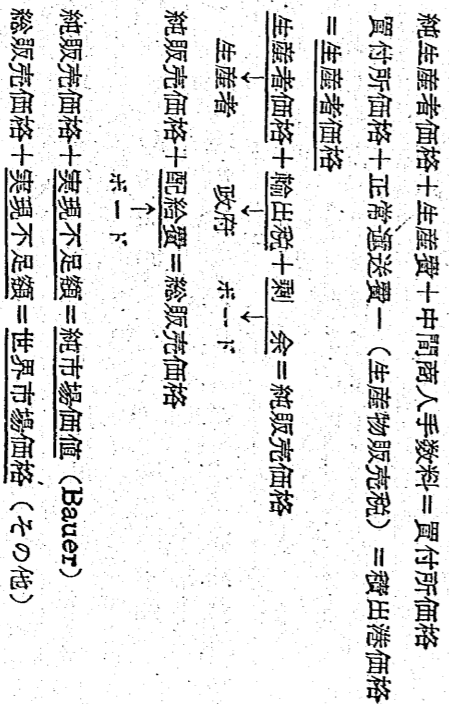 純生産者価格＋生産費＋中間商人手数料＝買付所価格
買付所価格＋正常逓送費－（生産物販売税）＝積出港価格
＝生産者価格
生産者価格＋輸出税＋剰　余＝純販売価格
↓　↓　↓
生産者　政府　ボード
純販売価格＋配給費＝総販売価格
↑
ボード
純販売価格＋実現不足額＝純市場価値（Bauer）
総販売価格＋実現不足額＝世界市場価格（その他）